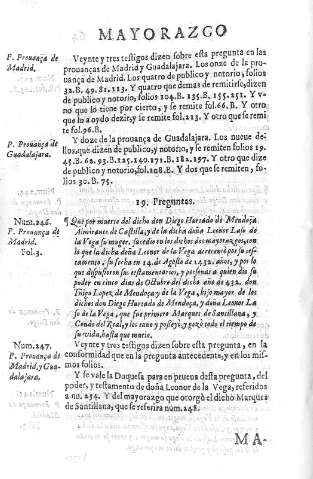 MAYORAZGO
P. Prouança de
Madrid.
Veynte y tres testigos dizen sobre esta pregunta en las
prouanças de Madrid y Guadalajara. Los onze de la pro-
uança de Madrid. Los quatro de publico y notorio, folios
32.B. 49. 81. 113. Y quatro que demas de remitirse, dizen
de publico y notorio, folios 104.B. 135.B. 155. 251. Y v-
no que lo tiene por cierto, y se remite fol. 66.B. Y otro
que lo a oydo dezir, y se remite fol. 213. Y otro que se remi
te fol. 96.B.
P. Prouança de
Guadalajara.
Y doze de la prouança de Guadalajara. Los nueue de-
llos, que dizen de publico y notorio, y se remiten folios 19.
45.B. 62. 93.B. 125. 140. 171.B. 182. 197. Y otro que dize
de publico y notorio, fol. 108.B. Y dos que se remiten, fo-
lios 30.B. 75.
19. Preguntas.
Num. 246.
P. Prouança de
Madrid.
Fol. 3.
¶ Que por muerte del dicho don Diego Hurtado de Mendoça
Almirante de Castilla, y de la dicha doña Leonor Laso de
la Vega su muger, sucedio en los dichos dos mayorazgos, con
lo que la dicha doña Leonor de la Vega acrecentò por su tes-
tamento, su fecha en 14. de Agosto de 1432. años, y por lo
que dispusieron sus testamentarios, y personas a quien dio su
poder en cinco dias de Octubre del dicho año de 432. don
Iñigo Lopez de Mendoça y de la Vega, hijo mayor de los
dichos don Diego Hurtado de Mendoça, y doña Leonor La
so de la Vega, que fue primero Marques de Santillana, y
Conde del Real, y los tuuo y posseyò y gozò todo el tiempo de
su vida, hasta que murio.
Num. 247.
P. Prouança de
Madrid, y Gua-
dalajara.
Veynte y tres testigos dizen sobre esta pregunta, en la
conformidad que en la pregunta antecedente, y en los mis-
mos folios.
Y se vale la Duquesa para en prueua desta pregunta, del
poder, y testamento de doña Leonor de la Vega, referidos
a no. 234. Y del mayorazgo que otorgò el dicho Marques
de Santillana, que se referira num. 248.
MA-